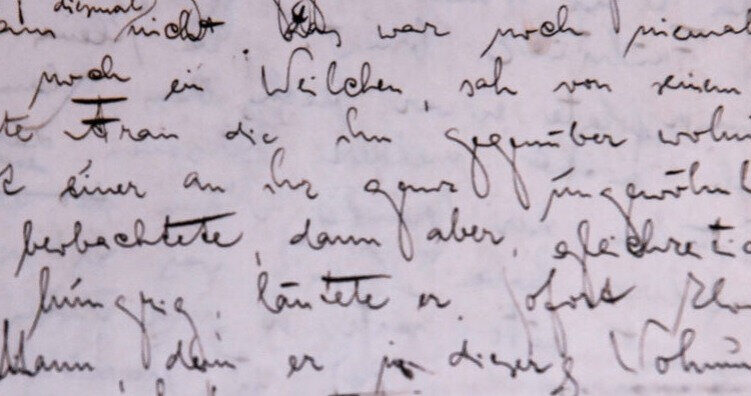 diesmal
am nicht. Das war noch niemal
noch ein Weilchen, sah von seinem
te Frau die ihm gegenüber wohn
t einer an ihr ganz ungewöhnl
beobachtete, dann aber, gleichzeitig
hungrig, läutete er. Sofort klo
Mann, den er in dieser Wohnun